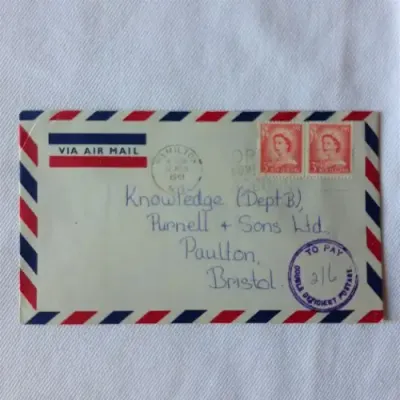 VIA AIR MAIL
HAMILTON
Knowledge (Dept B),
Purnell & Sons Ltd.
Paulton,
Bristol.
TO PAY
2/6
DOUBLE DEFICIENT POSTAGE